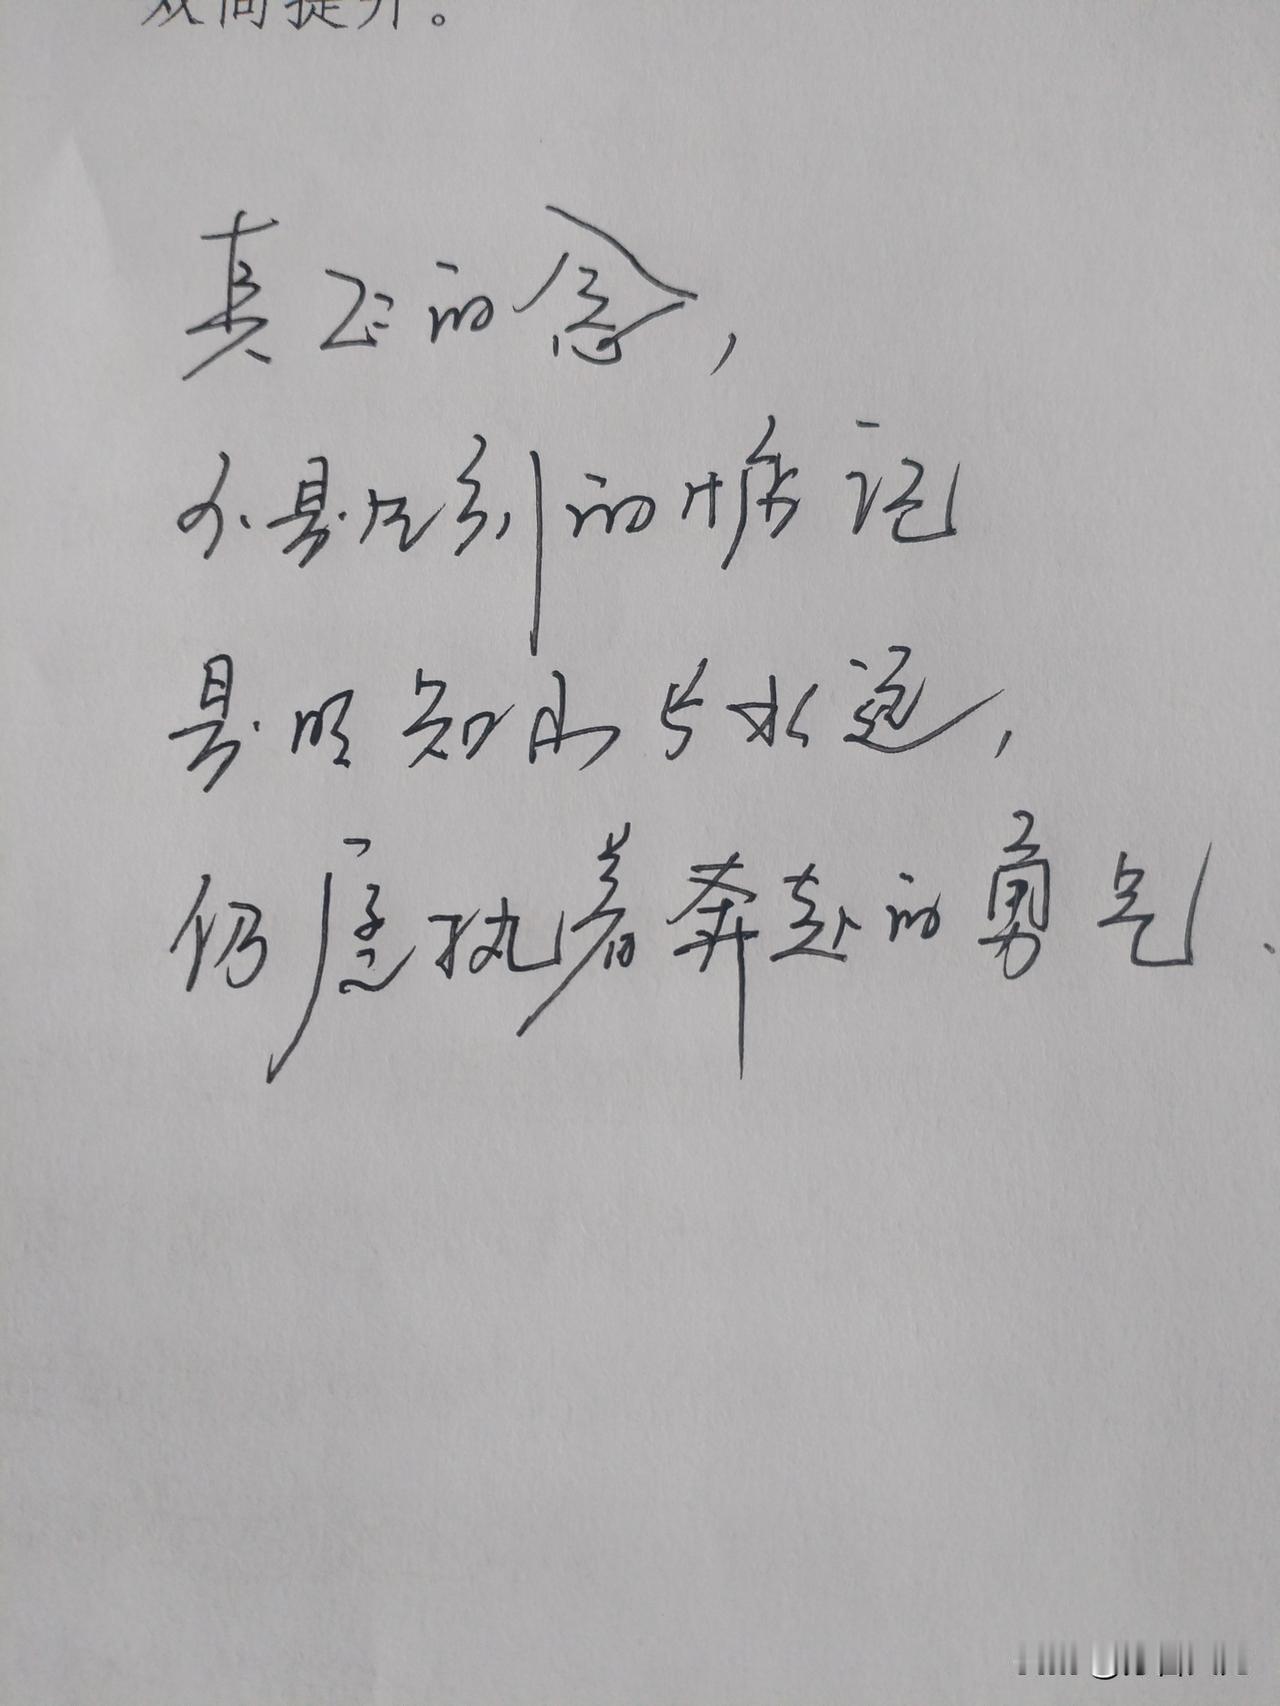 双向提升。
真正的念，
不是片刻的惦记
是明知山与水远，
仍愿执着奔赴的勇气、